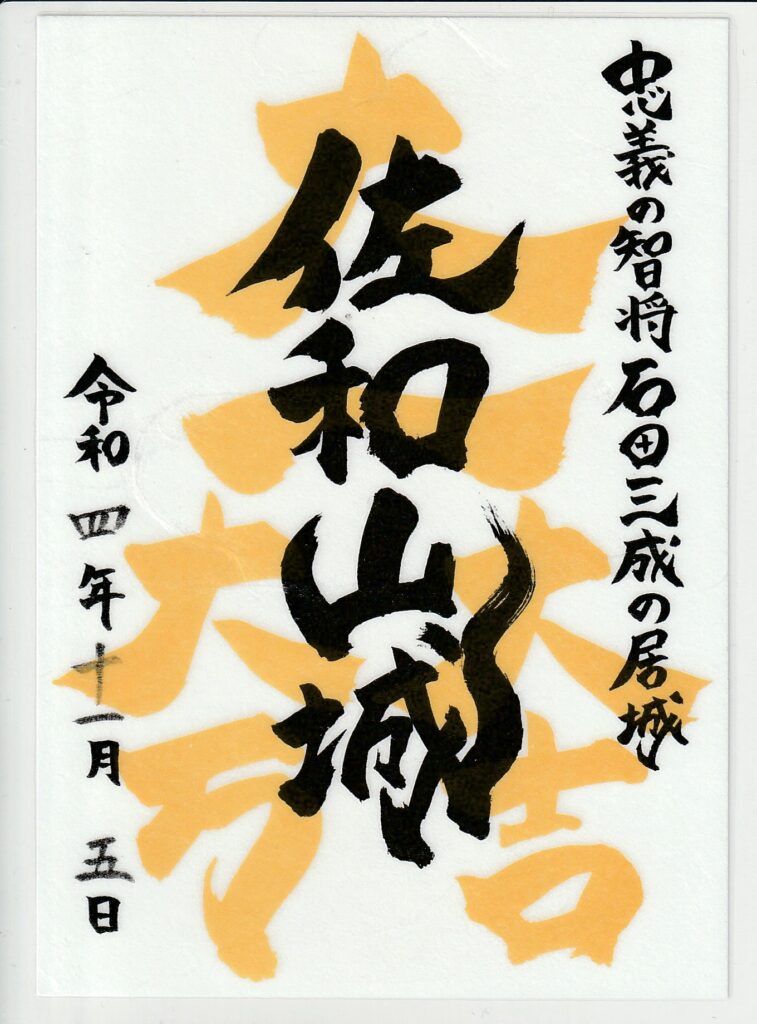 忠義の智将 石田三成の居城
佐和山城
大一
大万
大吉
令和 四年 十一月 五日